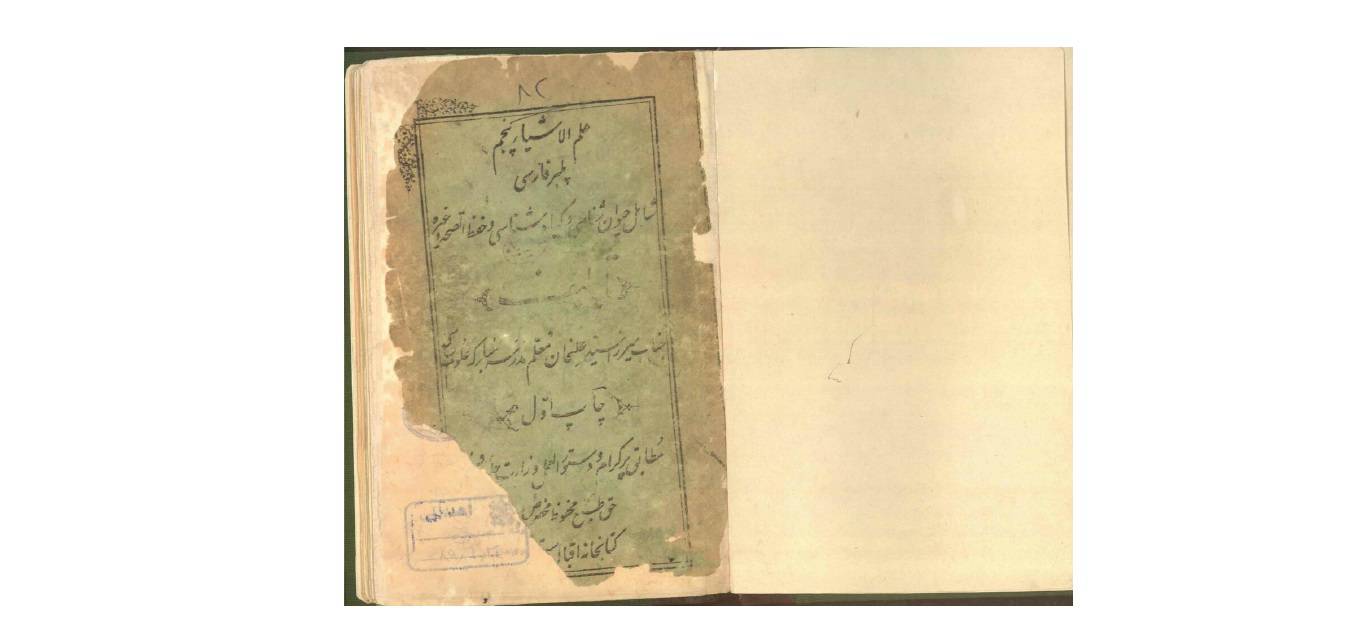 ۸۲
علم الاشیاء پنجم
پلمبر فارسی
شامل حیوان شناسی و گیاه شناسی و حفظ الصحه و غیره
تألیف
جناب میرزا سید علیخان معلم مدرسه مبارکه علوم سیاسی
چاپ اول
مطابق پرگرام و دستورالعمل وزارت جلیله
حق طبع محفوظ مخصوص
کتابخانه اقبال است
اهدائی